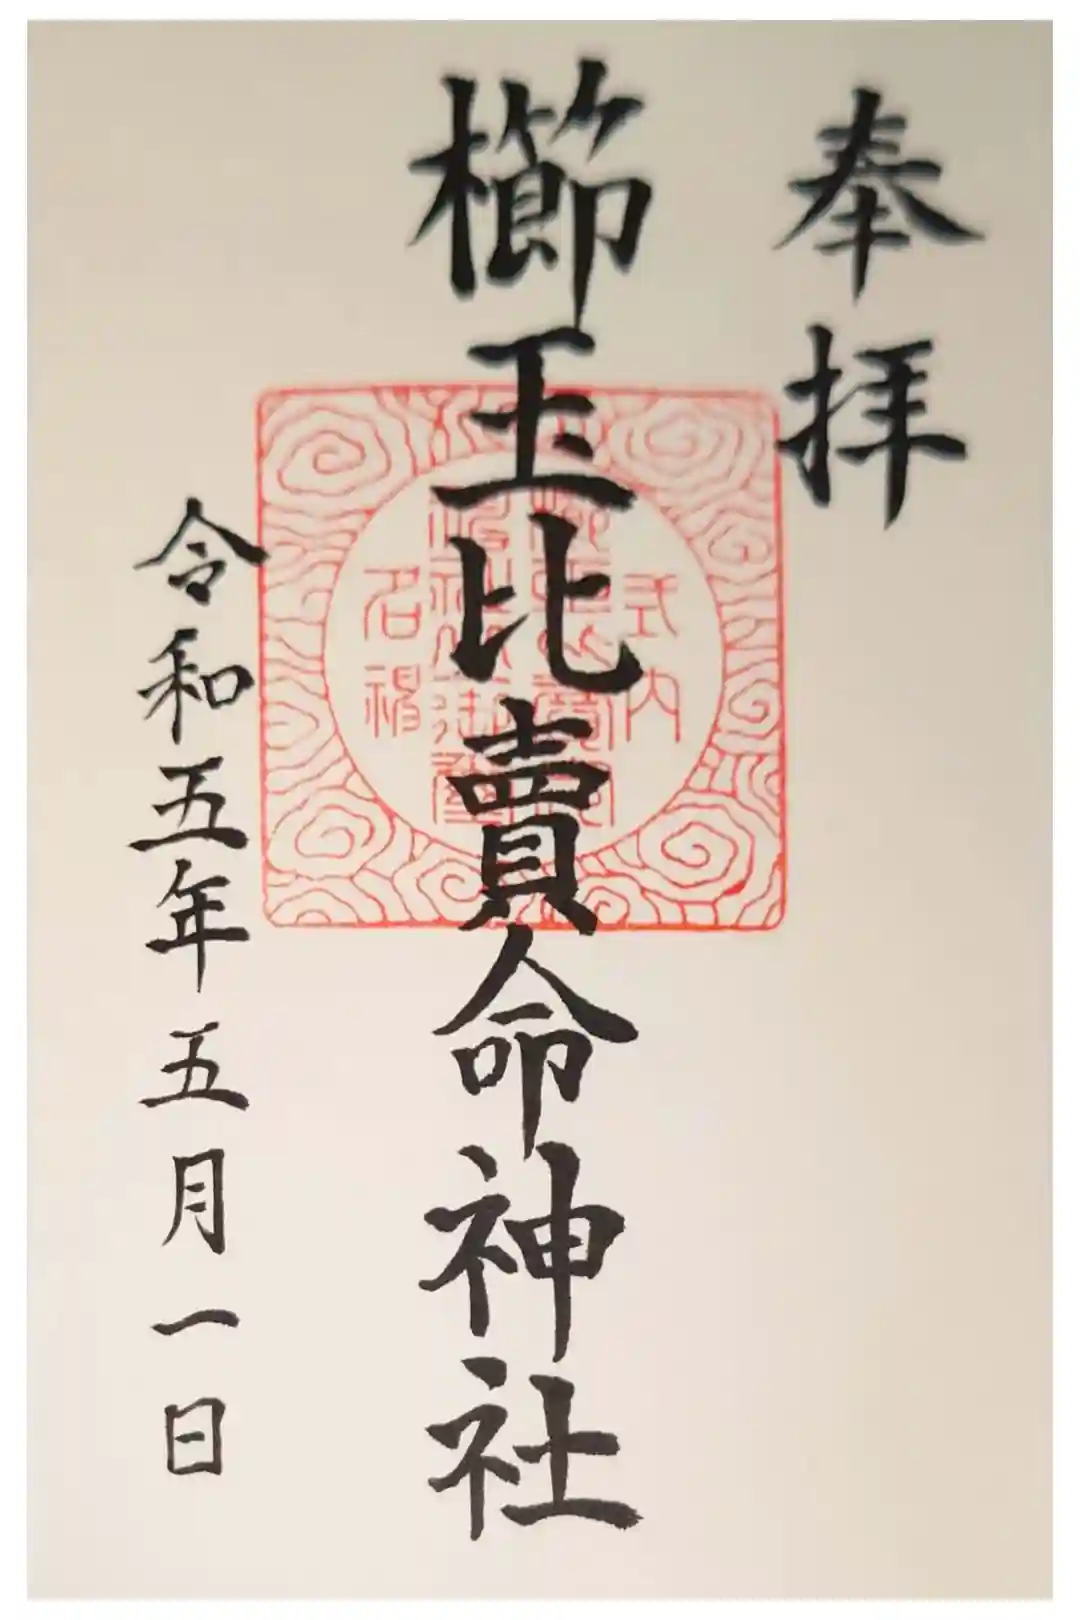 奉拝
櫛玉比賣命神社
式内
名神
令和五年五月一日